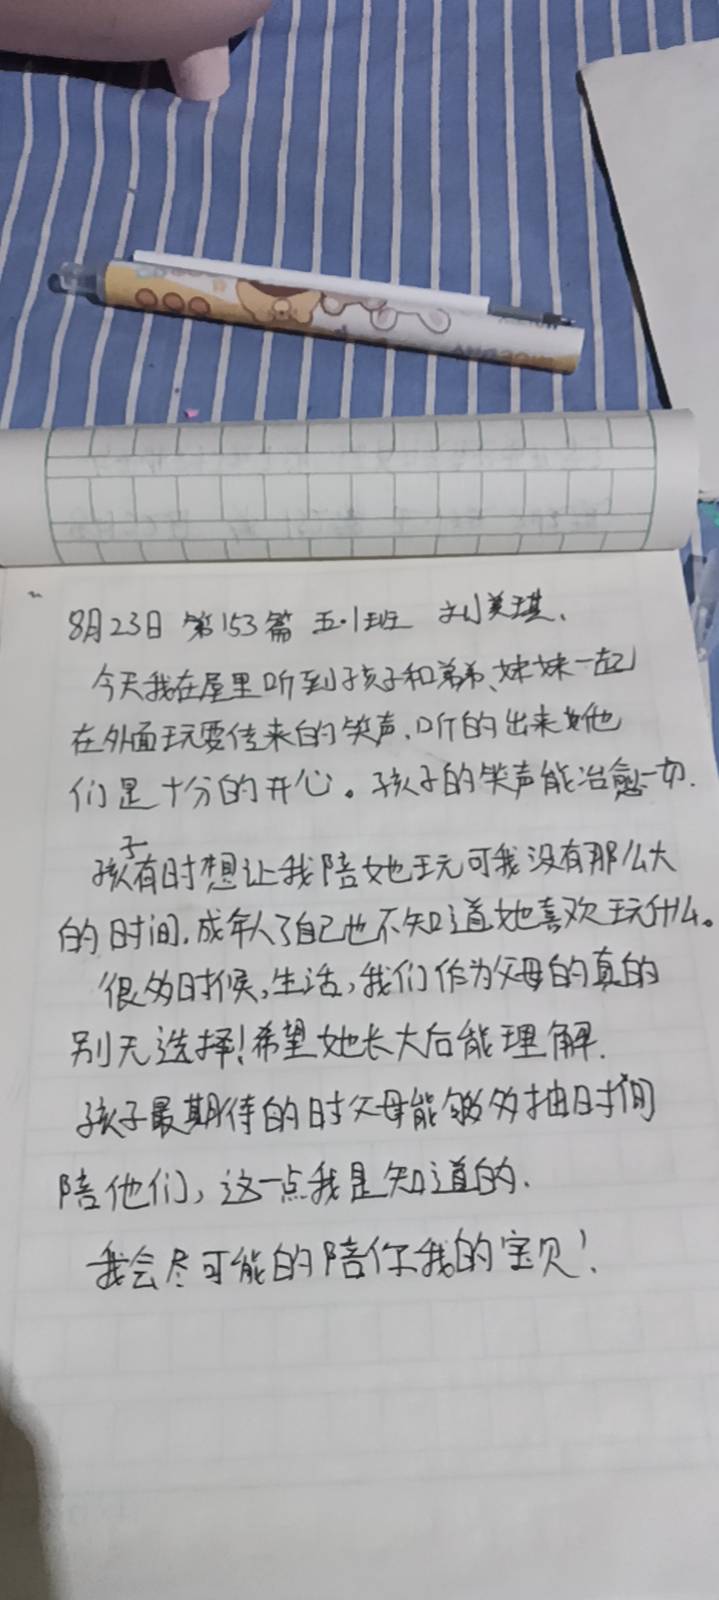 8月23日 第153篇 五·1班 刘美琪、
今天我在屋里听到孩子和弟弟、妹妹一起
在外面玩耍传来的笑声,听的出来她他
们是十分的开心。孩子的笑声能治愈一切.
孩子有时想让我陪她玩可我没有那么大
的时间,成年人了自己也不知道她喜欢玩什么。
很多时候,生活,我们作为父母的真的
别无选择!希望她长大后能理解.
孩子最期待的时父母能够多抽时间
陪他们,这一点我是知道的.
我会尽可能的陪你我的宝贝!